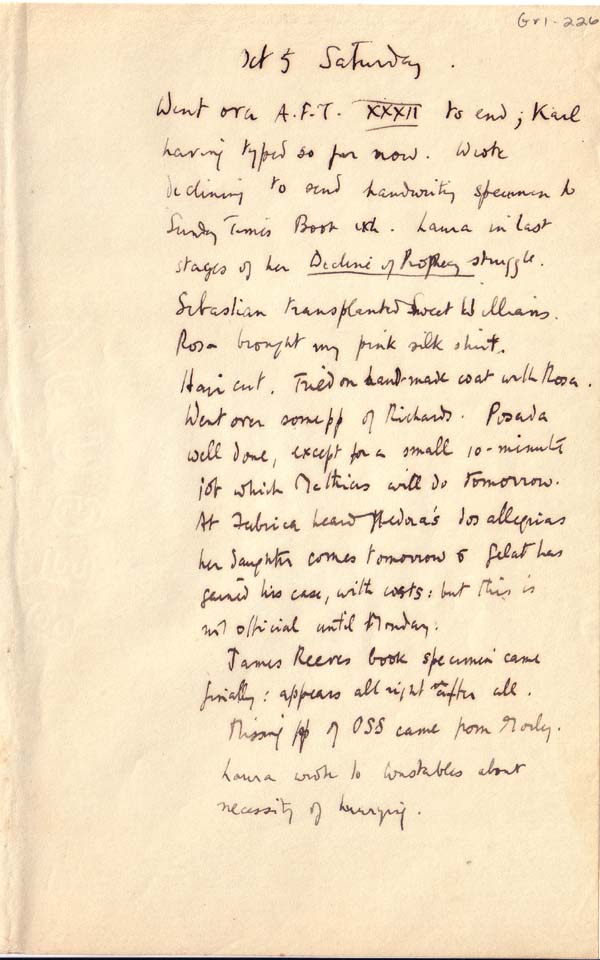 Gr1-226
Oct 5 Saturday.
Went over A.F.T. XXXII to end; Karl
having typed so far now. Wrote
declining to send handwriting specimen to
Sunday Times Book exh. Laura in last
stages of her Decline of Prophecy struggle.
Sebastian transplanted Sweet Williams.
Rosa brought my pink silk shirt.
Hair cut. Tried on hand-made coat with Rosa.
Went over some pp of Richards. Posada
well done, except for a small 10-minute
job which Mathias will do tomorrow.
At Fabrica heard Medora's dos allegrias
her daughter comes tomorrow & Gelat has
gained his case, with costs: but this is
not official until Monday.
James Reeves book specimen came
finally: appears all right after all.
Missing pp of OSS came from
Laura wrote to Constables about
necessity of hurrying.